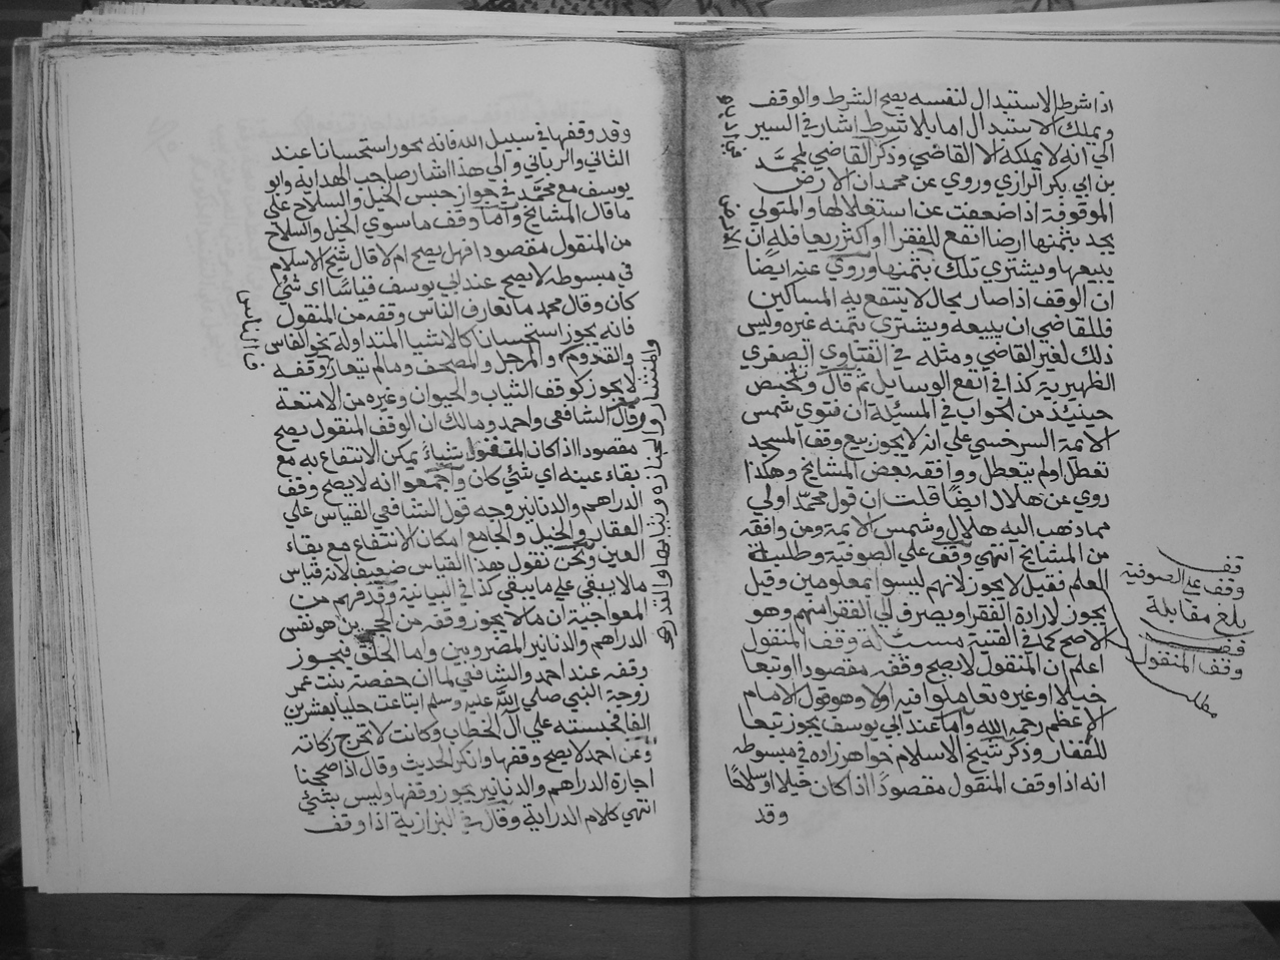 اذا شرط الاستبدال لنفسه يصح الشرط والوقف
ويملك الاستبدال اما بلا شرط اشار في السير
الي انه لا يملكه الا القاضي وذكر القاضي لمحمد
بن ابي بكر الرازي وروي عن محمد ان الارض
الموقوفة اذا ضعفت عن استغلالها والمتولي
يجد بثمنها ارضا انفع للفقرا او اكثر ريعا فله ان
يبيعها ويشتري تلك بثمنها وروي عنه ايضا
ان الوقف اذا صار بحال لا ينتفع به المساكين
فللقاضي ان يبيعه ويشتري بثمنه غيره وليس
ذلك لغير القاضي ومثله في الفتاوي الصغري
الظهيرية كذا في انفع الوسايل ثم قال وتلخص
حينئذ من الجواب في المسئلة ان فتوي شمس
الائمة السرخسي علي انه لا يجوز بيع وقف المسجد
تعطل او لم يتعطل ووافقه بعض المشايخ وهكذا
روي عن هلال ايضا قلت ان قول محمد اولي
مما ذهب اليه هلال وشمس الائمة ومن وافقه
من المشايخ انتهي وقف علي الصوفية وطلبة
العلم فقيل لا يجوز لانهم ليسوا بمعلومين وقيل
يجوز لارادة الفقرا ويصرف الي الفقرا منهم وهو
الاصح كما في القنية مسئلة وقف المنقول
اعلم ان المنقول لا يصح وقفه مقصودا او تبعا
خيلا او غيره تعاملوا فيه اولا وهو قول الامام
الاعظم رحمه الله واما عند ابي يوسف يجوز تبعا
للعقار وذكر شيخ الاسلام خواهر زاده في مبسوطه
انه اذا وقف المنقول مقصودا اذا كان خيلا او سلاحا
وقد
الارض
قف
وقف علي الصوفية
بلغ مقابلة
قف
وقف المنقول
مطلب
وقد وقفها في سبيل الله فانه يجوز استحسانا عند
الثاني والرباني والي هذا اشار صاحب الهداية وابو
يوسف مع محمد في جواز حبس الخيل والسلاح علي
ما قال المشايخ واما وقف ما سوي الخيل والسلاح
من المنقول مقصودا فهل يصح ام لا قال شيخ الاسلام
في مبسوطه لا يصح عند ابي يوسف قياسا اي شئ
كان وقال محمد ما تعارف الناس وقفه من المنقول
فانه يجوز استحسانا كالاشيا المتداولة نحو الفاس
والقدوم والمرجل والمصحف وما لم يتعارف وقفه
فلا يجوز كوقف الثياب والحيوان وغيره من الامتعة
وقال الشافعي واحمد ومالك ان الوقف المنقول يصح
مقصودا اذا كان المنقول شياء يمكن الانتفاع به مع
بقاء عينه اي شئ كان واجمعوا انه لا يصح وقف
الدراهم والدنانير وجه قول الشافعي القياس علي
العقار والخيل والجامع امكان الانتفاع مع بقاء
العين ونحن نقول هذا القياس ضعيف لانه قياس
ما لا يبقي علي ما يبقي كذا في البيانية وقد فهم من
المعواجية ان ما لا يجوز وقفه من الحجرين هو نفس
الدراهم والدنانير المضروبين واما الحلي فيجوز
وقفه عند احمد والشافعي لما ان حفصة بنت عمر
زوجة النبي صلي الله عليه وسلم ابتاعت حليا بعشرين
الفا فحبسته علي آل الخطاب وكانت لا تخرج زكاته
وعن احمد لا يصح وقفها وانكر الحديث وقال اذا صححنا
اجارة الدراهم والدنانير يجوز وقفها وليس بشئ
انتهي كلام الدراية وقال في البزازية اذا وقف
والمنشار والجنازة وثيابها والقدر
الناس